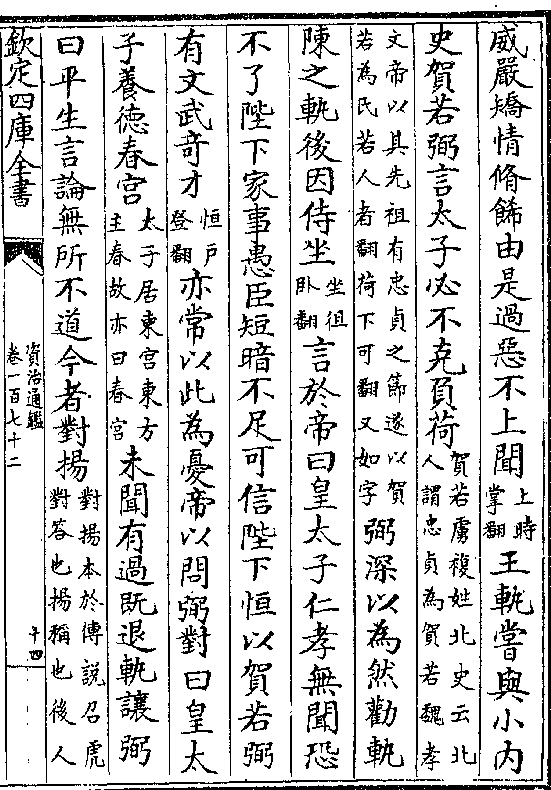 威嚴矯情脩飾由是過惡不上聞上時掌翻王軌嘗與小内
史賀若弼言太子必不克負荷賀若虜複姓北史云北人謂忠貞為賀若魏孝
文帝以其先祖有忠貞之節遂以賀若為氏若人者翻荷下可翻又如字弼深以為然勸軌
陳之軌後因侍坐坐徂卧翻言於帝曰皇太子仁孝無聞恐
不了陛下家事愚臣短暗不足可信陛下恒以賀若弼
有文武奇才恒戶登翻亦常以此為憂帝以問弼對曰皇太
子養德春宮太子居東宮東方主春故亦曰春宮未聞有過既退軌讓弼
曰平生言論無所不道今者對揚對揚本於傅說召虎對答也揚稱也後人
欽定四庫全書
資治通鑑
卷一百七十二
十四